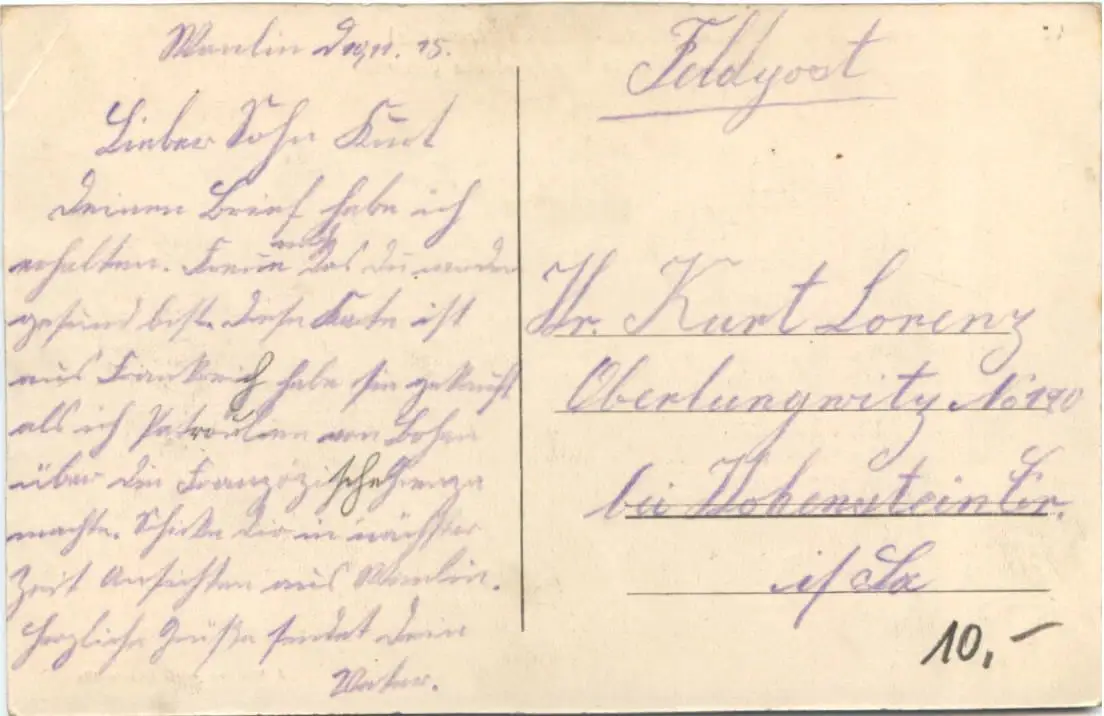 Wanlin D 10,11. 15.
Lieber Sohn Kurt
Deinen Brief habe ich
erhalten. Freue mich das du wieder
gesund bist. Diese Karte ist
aus Frankreich habe sie gekauft
als ich Patroulien von Bohan
über die Französische Grenze
machte. Schicke dir in nächster
Zeit Ansichten aus Wanlin.
Herzliche Grüße sendet Dein
Vater.
Feldpost
Hr. Kurt Lorenz
Oberlungwitz No 190
bei Hohenstein Er.
i/ Sa
10,-